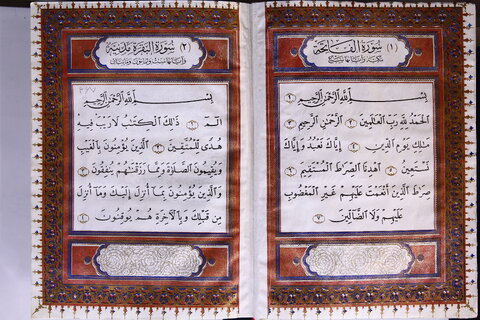 (١) سُورَةُ الْفَاتِحَةِ
مكية وآياتها سبع
بِسْمِ اللَّهِ الرَّحْمٰنِ الرَّحِيمِ ١
الْحَمْدُ لِلَّهِ رَبِّ الْعَالَمِينَ ٢ الرَّحْمٰنِ الرَّحِيمِ ٣
مَالِكِ يَوْمِ الدِّينِ ٤ إِيَّاكَ نَعْبُدُ وَإِيَّاكَ
نَسْتَعِينُ ٥ اهْدِنَا الصِّرَاطَ الْمُسْتَقِيمَ ٦
صِرَاطَ الَّذِينَ أَنْعَمْتَ عَلَيْهِمْ غَيْرِ الْمَغْضُوبِ
عَلَيْهِمْ وَلَا الضَّالِّينَ ٧
(٢) سُورَةُ الْبَقَرَةِ مَدَنِيَّة
وآياتها ست وثمانون ومائتان
بِسْمِ اللَّهِ الرَّحْمٰنِ الرَّحِيمِ
الٓمٓ ١ ذٰلِكَ الْكِتَابُ لَا رَيْبَ فِيهِ
هُدًى لِلْمُتَّقِينَ ٢ الَّذِينَ يُؤْمِنُونَ بِالْغَيْبِ
وَيُقِيمُونَ الصَّلَاةَ وَمِمَّا رَزَقْنَاهُمْ يُنْفِقُونَ ٣
وَالَّذِينَ يُؤْمِنُونَ بِمَا أُنْزِلَ إِلَيْكَ وَمَا أُنْزِلَ
مِنْ قَبْلِكَ وَبِالْآخِرَةِ هُمْ يُوقِنُونَ ٤